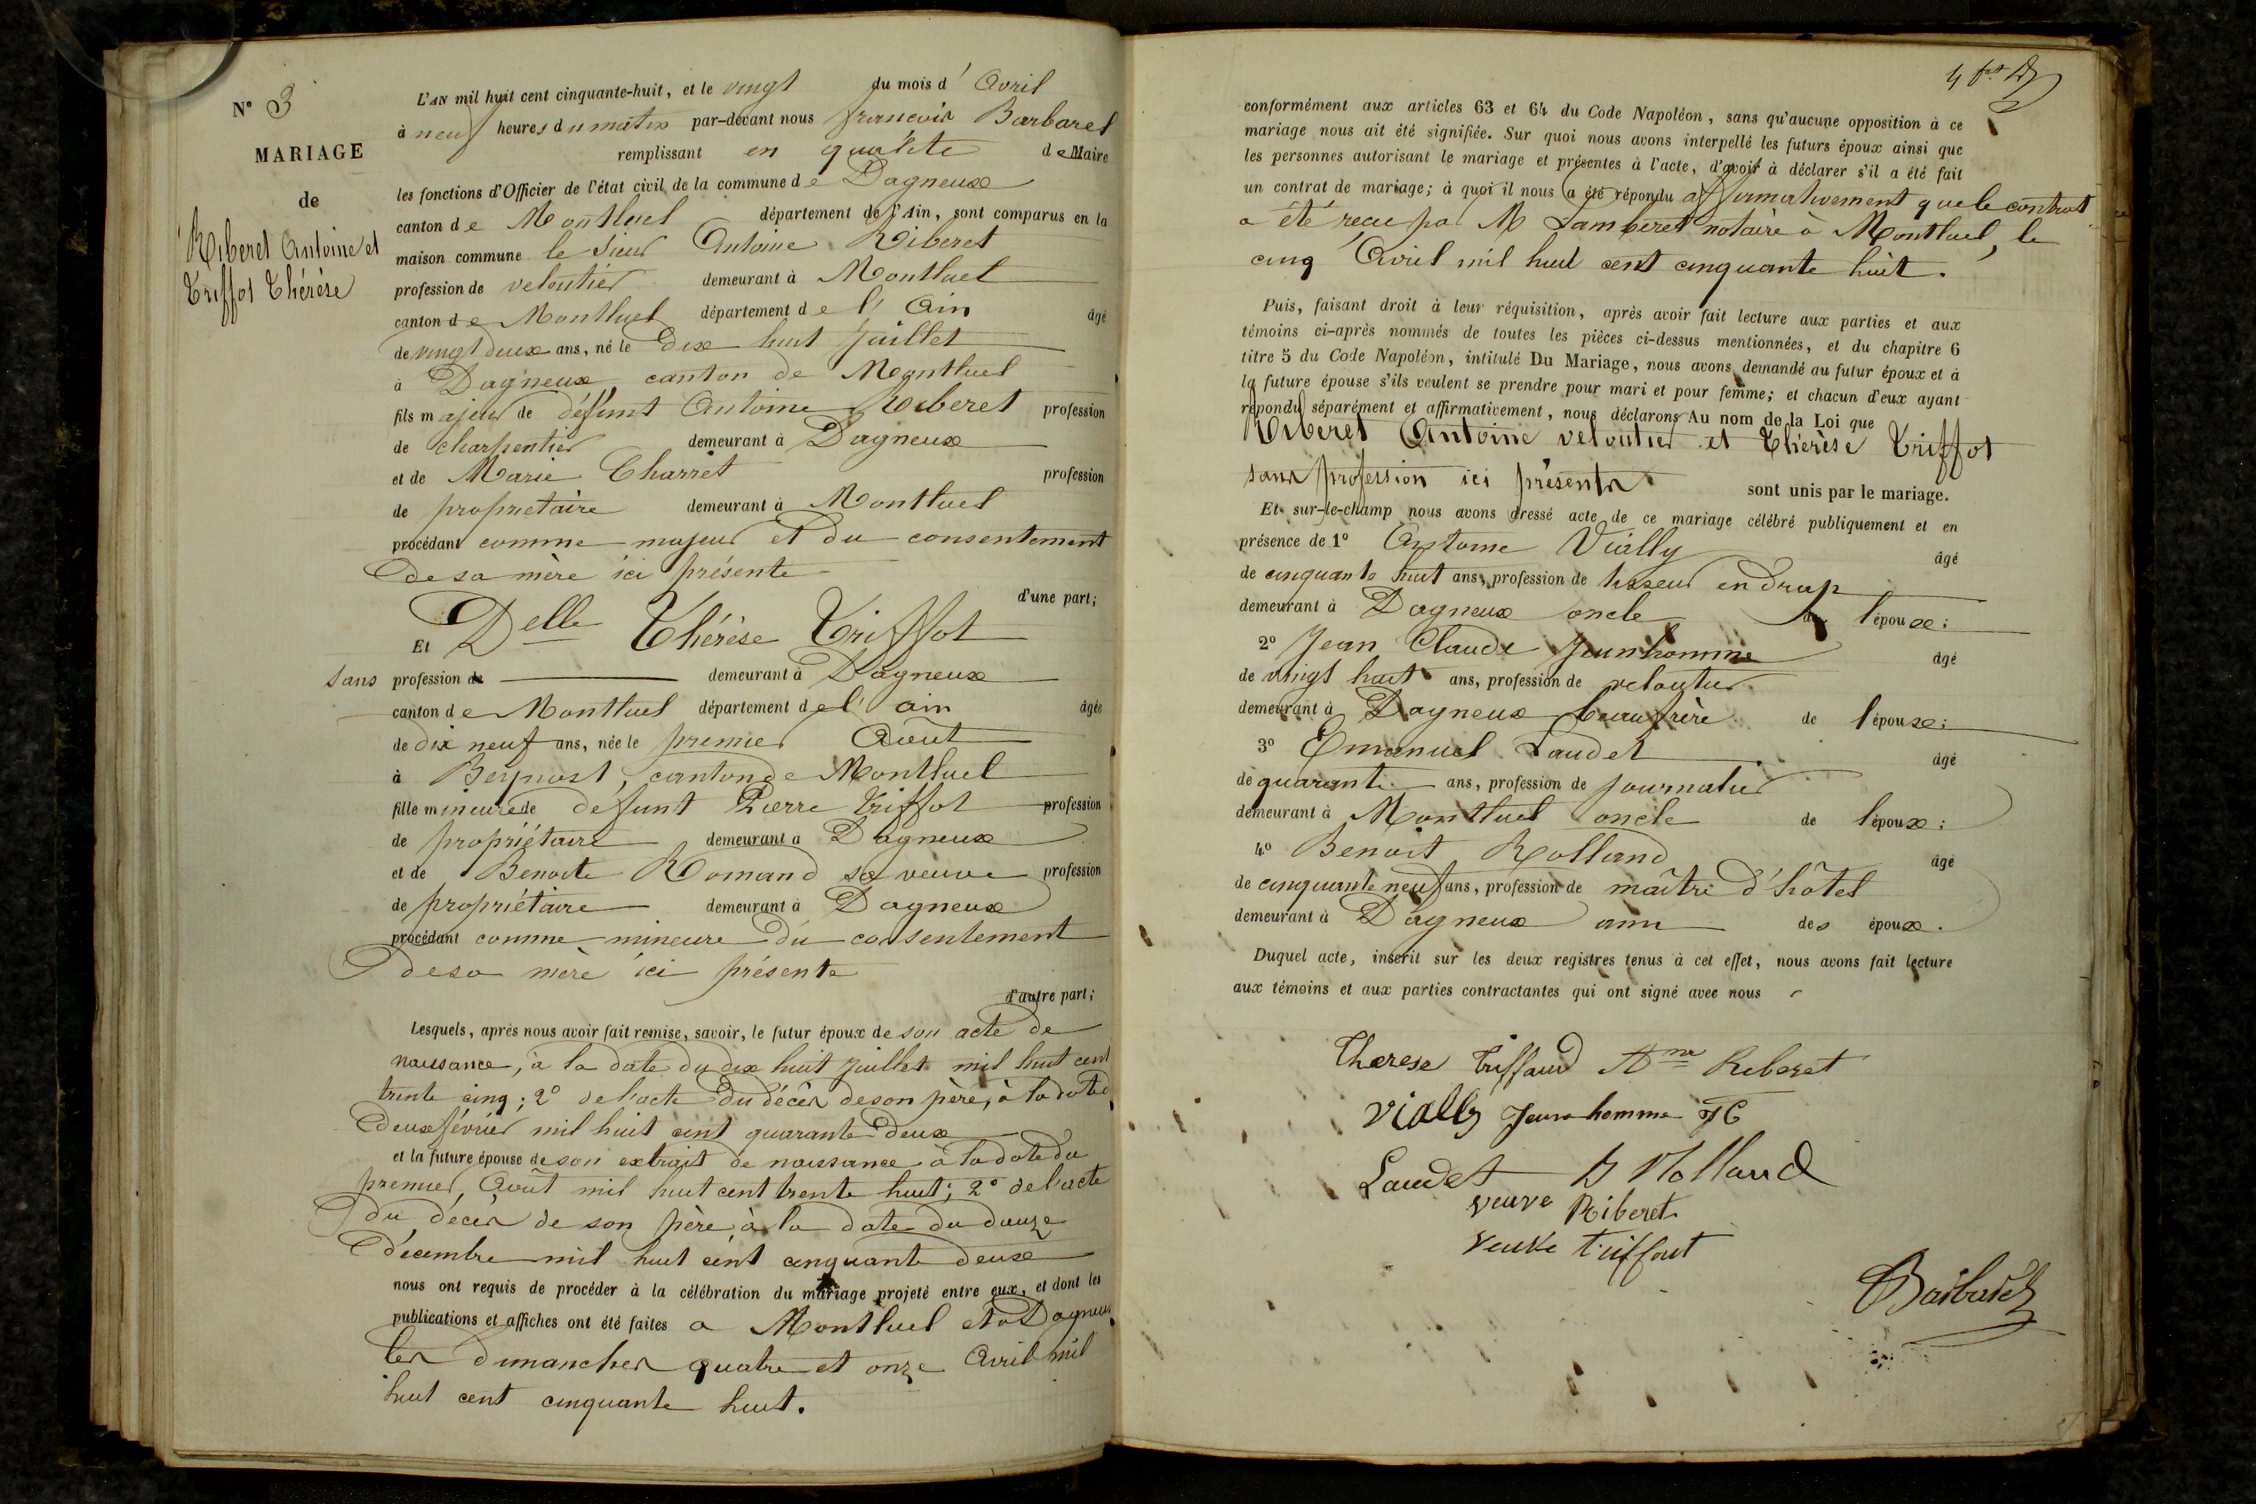 N° 3
MARIAGE
de
Riberet Antoine et
Triffot Thérèse
L'AN mil huit cent cinquante-huit, et le vingt du mois d'Avril
à neuf heures du matin par-devant nous françois Barbaret
remplissant en qualité de Maire
les fonctions d'Officier de l'état civil de la commune de Dagneux
canton de Montluel département de l'Ain, sont comparus en la
maison commune le Sieur Antoine Riberet
profession de veloutier demeurant à Montluel
canton de Montluel département de l'Ain âgé
de vingt deux ans, né le Dix huit Juillet
à Dagneux, canton de Montluel
fils majeur de défunt Antoine Riberet profession
de charpentier demeurant à Dagneux
et de Marie Charret profession
de propriétaire demeurant à Montluel
procédant comme majeur et du consentement
de sa mère ici présente
d'une part;
Et Delle Thérèse Triffot
sans profession de demeurant à Dagneux
canton de Montluel département de l'ain âgée
de dix neuf ans, née le premier Août
à Beynost, canton de Montluel
fille mineure de défunt Pierre Triffot profession
de propriétaire demeurant à Dagneux
et de Benoite Romand sa veuve profession
de propriétaire demeurant à Dagneux
procédant comme mineure du consentement
de sa mère ici présente
d'autre part;
Lesquels, après nous avoir fait remise, savoir, le futur époux de son acte de
naissance, à la date du dix huit Juillet mil huit cent
trente cinq; 2° de l'acte du décès de son père, à la date d
deux février mil huit cent quarante deux
et la future épouse de son extrait de naissance à la date du
premier Août mil huit cent trente huit; 2° de l'acte
du décès de son père à la date du douze
décembre mil huit cent cinquante deux
nous ont requis de procéder à la célébration du mariage projeté entre eux, et dont les
publications et affiches ont été faites a Montluel et à Dagneux
les dimanches quatre et onze Avril mil
huit cent cinquante huit.
conformément aux articles 63 et 64 du Code Napoléon, sans qu'aucune opposition à ce
mariage nous ait été signifiée. Sur quoi nous avons interpellé les futurs époux ainsi que
les personnes autorisant le mariage et présentes à l'acte, d'avoir à déclarer s'il a été fait
un contrat de mariage; à quoi il nous a été répondu affirmativement que le contrat
a été recu par M Lamberet notaire à Montluel, le
cinq Avril mil huit cent cinquante huit.
Puis, faisant droit à leur réquisition, après avoir fait lecture aux parties et aux
témoins ci-après nommés de toutes les pièces ci-dessus mentionnées, et du chapitre 6
titre 5 du Code Napoléon, intitulé Du Mariage, nous avons demandé au futur époux et à
la future épouse s'ils veulent se prendre pour mari et pour femme; et chacun d'eux ayant
répondu séparément et affirmativement, nous déclarons Au nom de la Loi que
Riberet Antoine veloutier et Thérèse Triffot
sans profession ici présents sont unis par le mariage.
Et sur-le-champ nous avons dressé acte de ce mariage célébré publiquement et en
présence de 1° Antoine Vially âgé
de cinquante huit ans, profession de tisseur en drap
demeurant à Dagneux oncle de l'époux;
2° Jean Claude Jeunhomme âgé
de vingt huit ans, profession de veloutier
demeurant à Dagneux beaufrère de l'époux;
3° Emanuel Laudet âgé
de quarante ans, profession de journalier
demeurant à Montluel oncle de l'époux;
4° Benoit Rolland âgé
de cinquante neuf ans, profession de maître d'hôtel
demeurant à Dagneux ami des époux.
Duquel acte, inscrit sur les deux registres tenus à cet effet, nous avons fait lecture
aux témoins et aux parties contractantes qui ont signé avec nous
Therese Triffaud Ane Riberet
Vially Jeune homme JC
Laudet B Rolland
veuve Riberet
veuve triffout
Barbaret